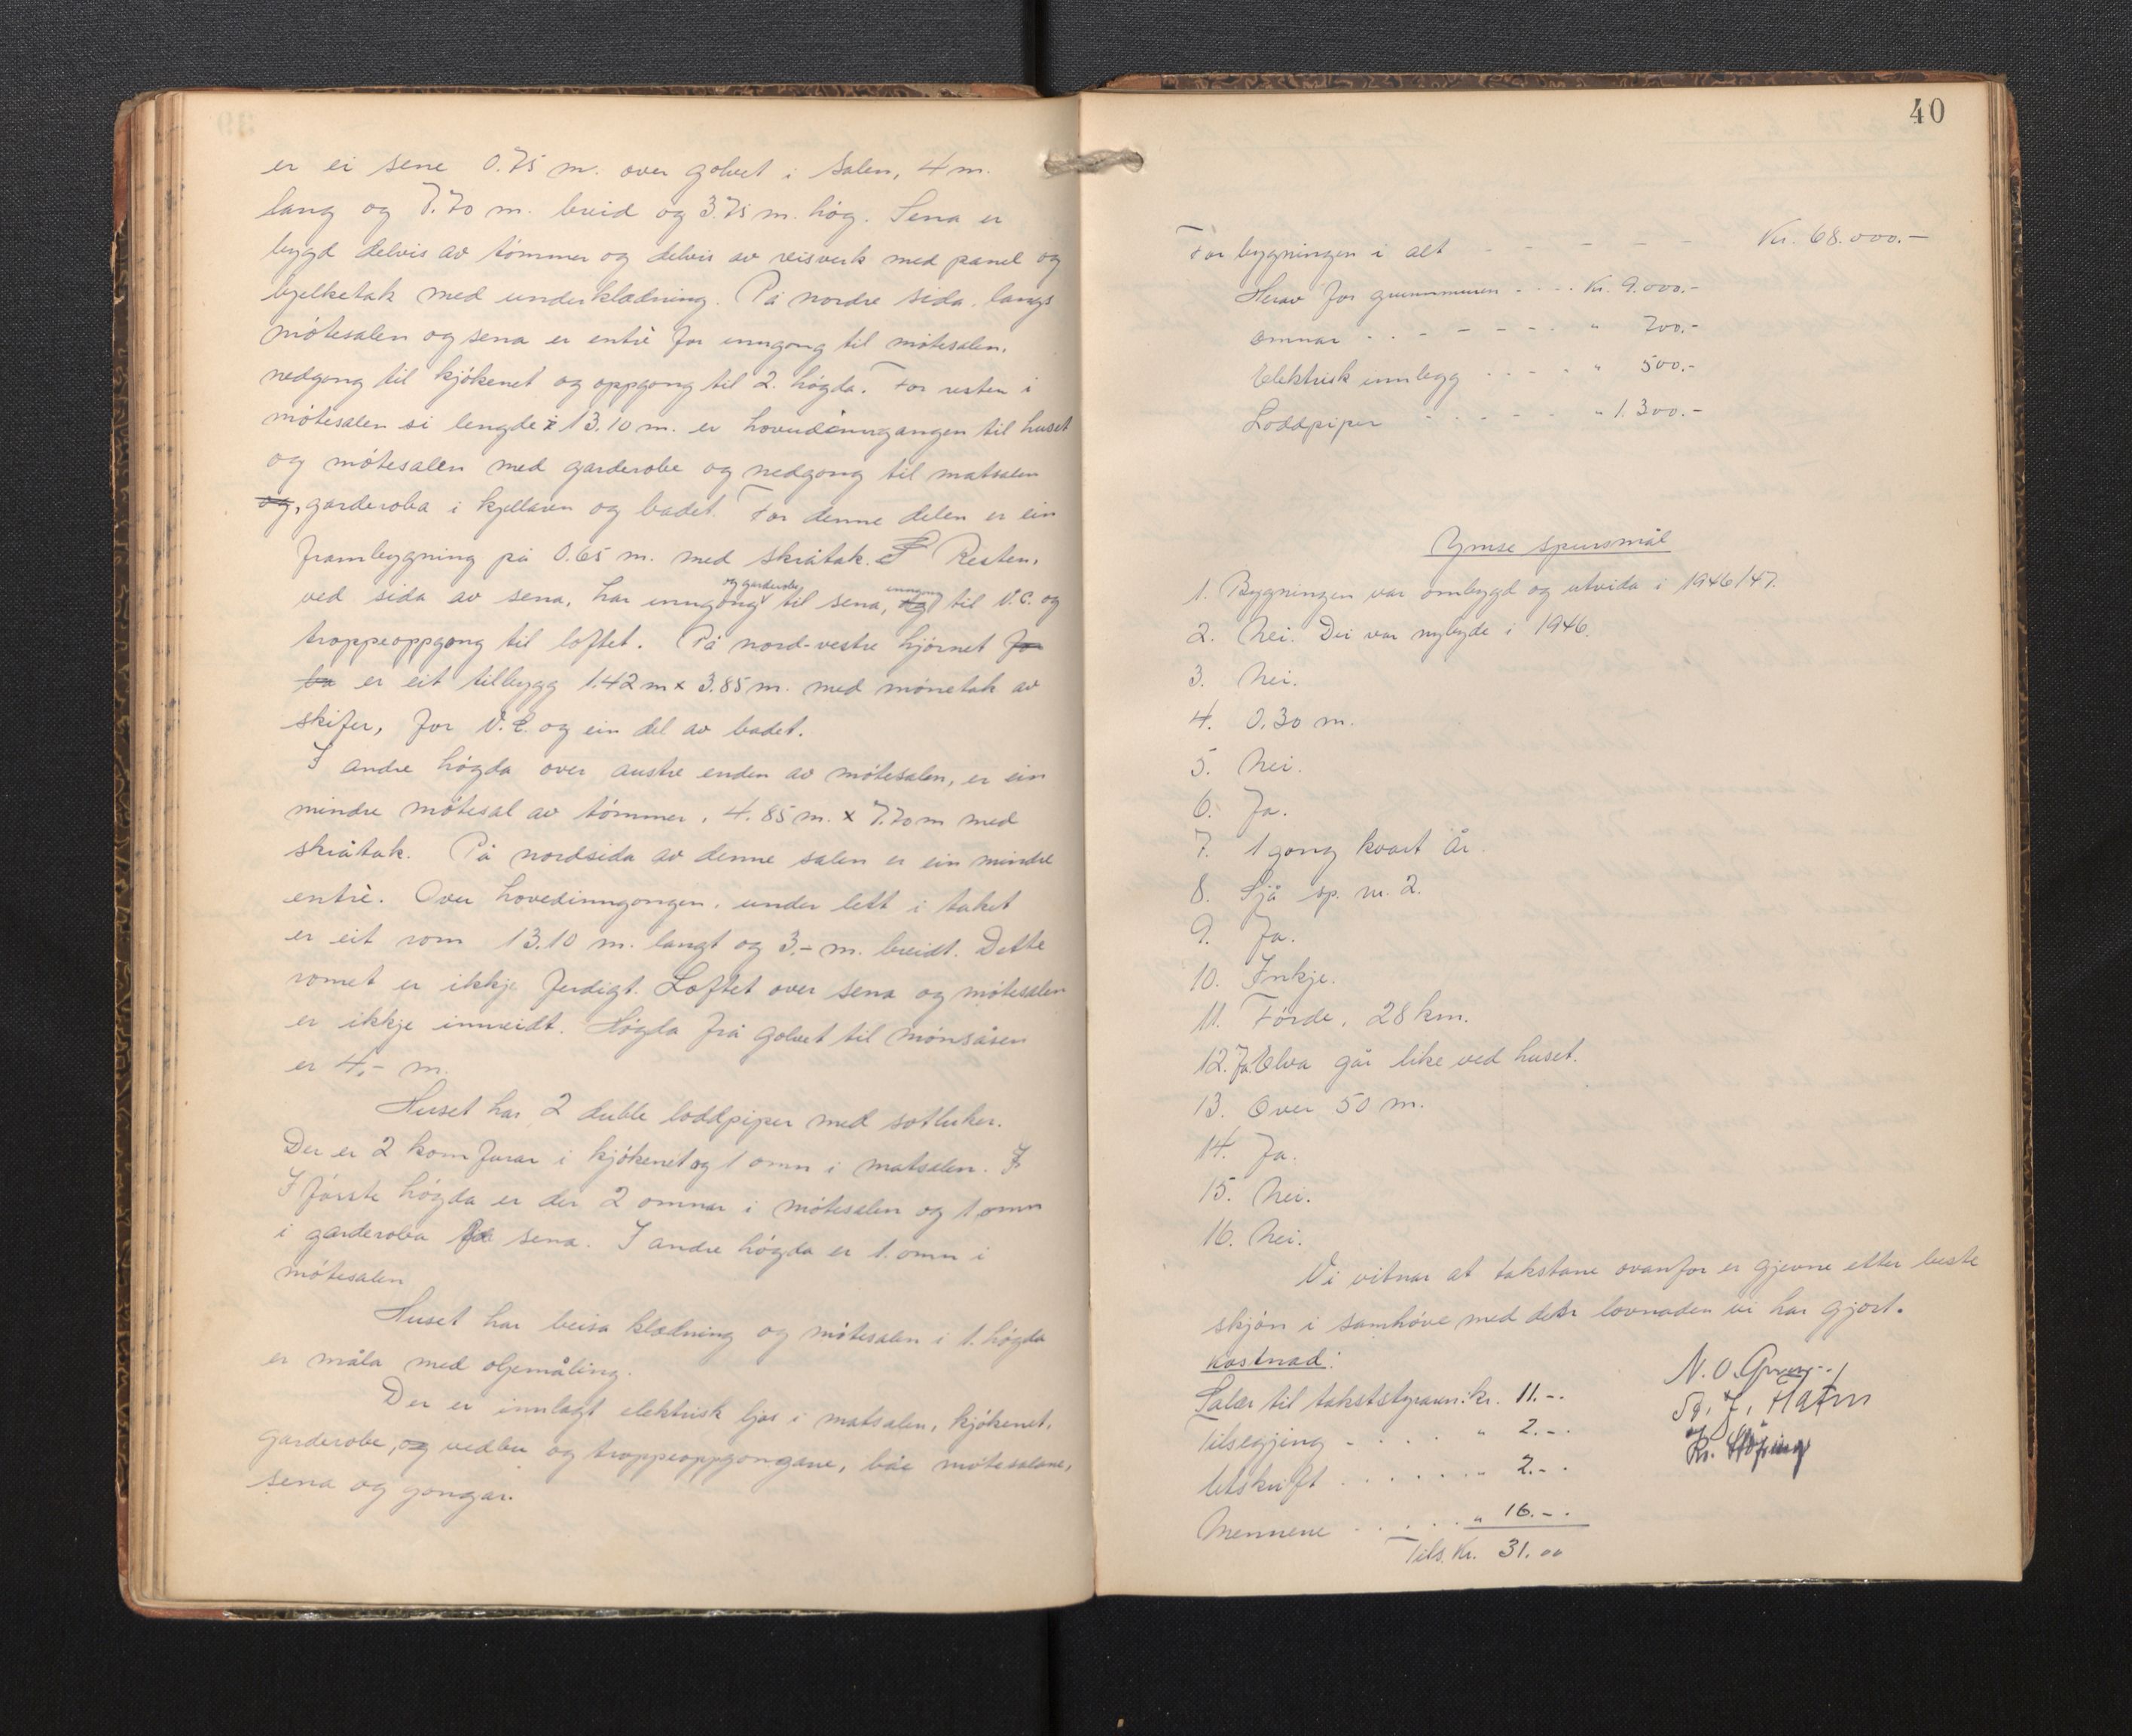 er ei sene 0.75 m. over golvet i salen, 4 m.
lang og 7.70 m. breid og 3.75 m. høg. Sena er
bygd delvis av tømmer og delvis av reisverk med panel og
bjelketak med underklædning. På nordre sida, langs
møtesalen og sena er entrè for inngong til møtesalen,
nedgong til kjøkenet og oppgong til 2. høgda. For resten i
møtesalen si lengde i 13.10 m. er hovudinngangen til huset
og møtesalen med garderobe og nedgong til matsalen
og, garderoba i kjellaren og badet. For denne delen er ein
frambygning på 0.65 m. med skråtak. Resten,
ved sida av sena, har inngong og garderobe til sena, inngong til V.C. og
troppeoppgong til loftet. På nord-vestre hjørnet
er eit tilbygg 1.42 m x 3.85 m. med mønetak av
skifer, for V.C. og ein del av badet.
I andre høgda over austre enden av møtesalen, er ein
mindre møtesal av tømmer, 4.85 m. x 7.70 m med
skråtak. På nordsida av denne salen er ein mindre
entrè. Over hovedinngongen, under lett i taket
er eit rom 13.10 m. langt og 3.- m. breidt. Dette
romet er ikkje ferdigt. Loftet over sena og møtesalen
er ikkje innreidt. Høgda frå golvet til mønsåsen
er 4,- m.
Huset har 2 duble loddpiper med sotluker.
Der er 2 komfurar i kjøkenet og 1 omn i matsalen.
I første høgda er der 2 omnar i møtesalen og 1 omn
i garderoba sena. I andre høgda er 1. omn i
møtesalen
Huset har beisa klædning og møtesalen i 1. høgda
er måla med oljemåling.
Der er innlagt elektrisk ljos i matsalen, kjøkenet,
garderobe, og vedbu og troppeoppgongane, båe møtesalane,
sena og gongar.
40
For bygningen i alt - - - - - Kr. 68.000.-
Herav for grunnmuren - - - - Kr. 9.000.-
Omnar - - - - - - " 700.-
Elektrisk innlegg - - - - " 500.-
Loddpiper - - - - - " 1.300.-
Ymse spursmål
1. Bygningen var ombygd og utvida i 1946/47.
2. Nei. Dei var nybygde i 1946.
3. Nei.
4. 0.30 m.
5. Nei.
6. Ja.
7. 1 gong kvart år.
8. Sjå sp. nr. 2.
9. Ja.
10. Inkje.
11. Førde, 28 km.
12. Ja. Elva går like ved huset.
13. Over 50 m.
14. Ja.
15. Nei.
16. Nei.
Vi vitnar at takstane ovanfor er gjevne etter beste
skjøn i samhøve med den lovnaden vi har gjort.
Kostnad:
Salær til takststyraren: kr. 11.-.
Tilsegjing - . . . " 2.-.
Utskrift . . . . . . " 2.-.
Mennene . . . . . " 16.-.
Tils. Kr. 31.00
N. O.